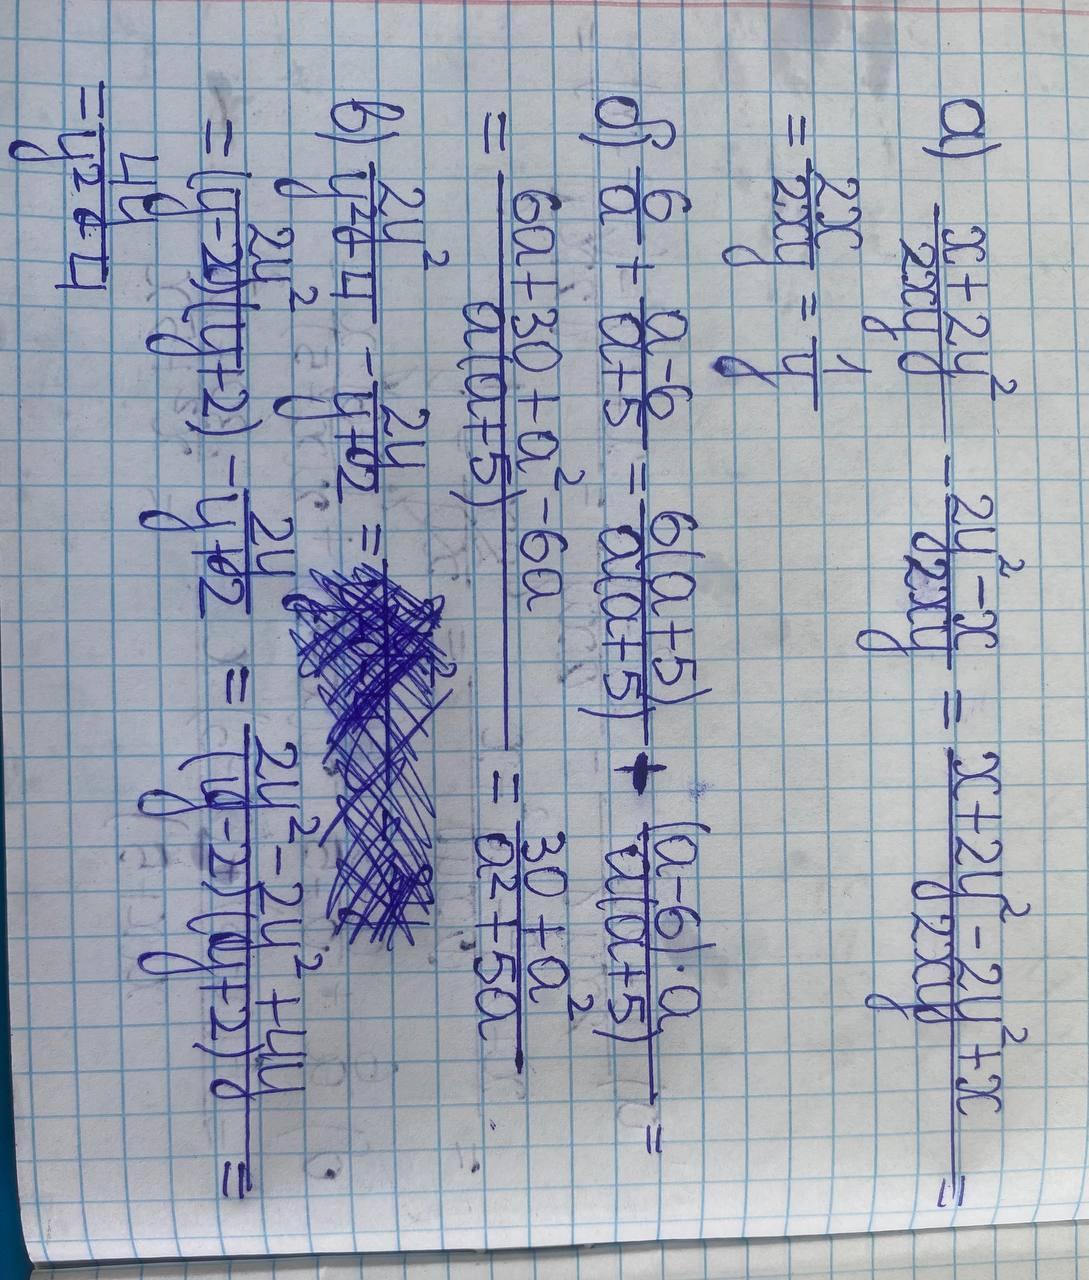 а) (x+2y²)/(2xy) - (2y²-x)/(2xy) = (x+2y²-2y²+x)/(2xy) =
= 2x/(2xy) = 1/y
б) 6/a + (a-6)/(a+5) = 6(a+5)/(a(a+5)) + (a-6)·a/(a(a+5)) =
= (6a+30+a²-6a)/(a(a+5)) = (30+a²)/(a²+5a)
в) 2y²/(y²-4) - 2y/(y+2) =
= 2y²/((y-2)(y+2)) - 2y/(y+2) = (2y²-2y²+4y)/((y-2)(y+2)) =
= 4y/(y²-4)